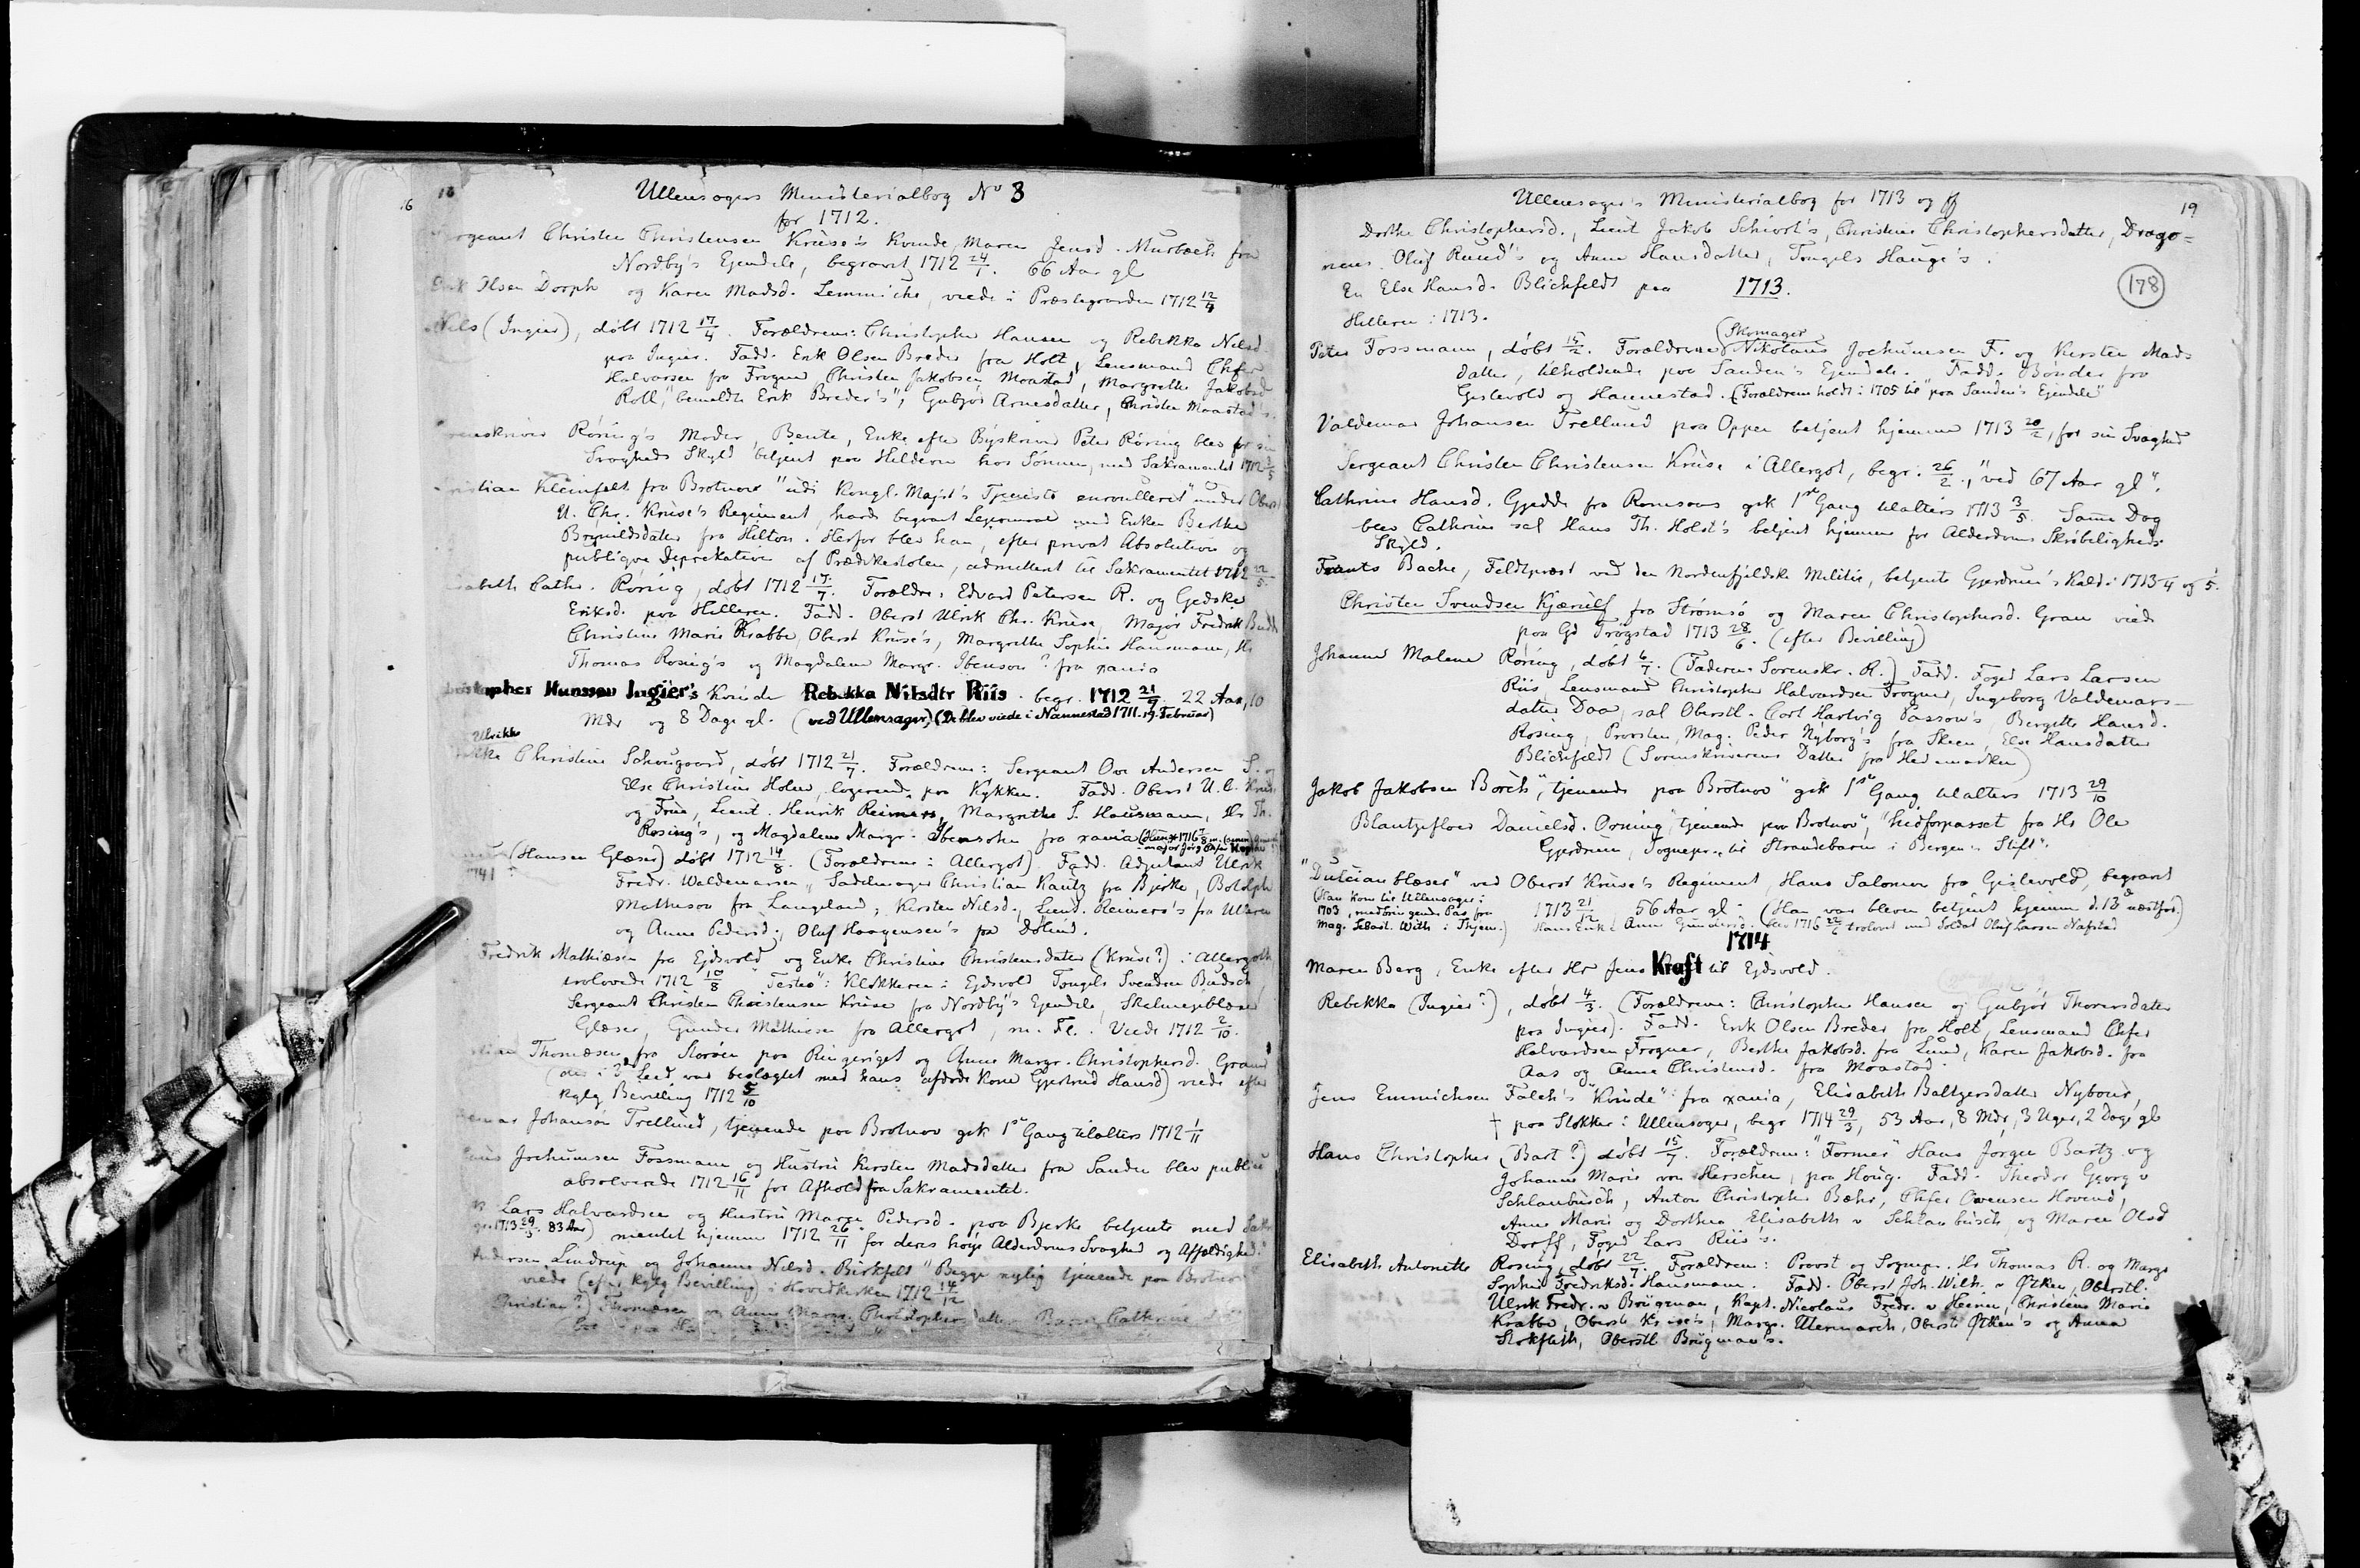 16 18
Ullensagers Ministerialbog No 3
for 1712.
Christen Christensen Kruse's Kvinde, Maren Jensd. Murbech fra
Nordby's Ejendele, begravet 1712 24/1. 66 Aar gl
Olsen Dorph og Karen Madsd. Lemmiche, viede i Præstegaarden 1712 12/4
Nils (Ingier), døbt 1712 17/4. Forældrene: Christopher Hansen og Rebekka Nilsd.
paa Ingier. Fadd. Erik Olsen Breder fra Holt, Lensmand Chfer
Halvorsen fra Frogner Christen Jakobsen Moastad, Margrethe Jakobsd
Roll, "bemeldte Erik Breder's", Gubjør Arnesdatter, Christen Moastad's.
Røring's Moder, Bente, Enke efter Byskriver Peter Røring blev for sin
Svagheds Skyld betjent paa Hilderen hos Sønnen, med Sakramentet 1712
Kleinfelt fra Brotnow "udi Kongl. Majst's Tjeneste enroulleret" under Oberst
U. Chr. Kruse's Regiment, havde begaaet Lejermaal med Enken Berthe
Brynildsdater fra Hilton. Herfor blev han, efter privat Absolution og
publiqve Deprekation af Prædikestolen, admitteret til Sakramentet 1712 22/5.
Cathr. Røring, døbt 1712 17/7. Forældre: Edvard Petersen R. og Gedske
Eriksd. paa Hilleren. Fadd. Oberst Ulrik Chr. Kruse, Major Fredrik Budde
Christine Marie Krabbe, Oberst Kruse's, Margrethe Sophie Hausmann, Hr
Thomas Rosing's og Magdalene Margr. Ibenson? fra xania
Hanssøn Ingier's Kvinde Rebekka Nilsdtr Riis. begr. 1712 21/7. 22 Aar, 10
Mdr og 8 Dage gl. (ved Ullensager) (De blev viede i Nannestad 1711. 19. Februar)
Ulrikke
Christine Schougaard, døbt 1712 21/7. Forældrene: Sergeant Ove Andersen S. og
Else Christine Holm, logerende paa Kykken. Fadd. Oberst U. C. Kruse
og Frue, Lieut. Henrik Reimers, Margrethe S. Hausmann, Hr Th.
Rosing's, og Magdalene Margr. Ibensohn fra xania
(Hansen Glæser) døbt 1712 14/8. (Forældrene i Allergot) Fadd. Adjutant Ulrik
Fredr. Waldemarsen, Sadelmager Christian Kautz fra Bjerke, Botolph
Mathison fra Langeland, Kirsten Nilsd., Lieut. Reimers's fra
og Anne Pedersd., Oluf Haagensen's paa Dølind.
Fredrik Mathiæsen fra Ejdsvold og Enke Christine Christensdater (Kruse?) i Allergodt
trolovede 1712 18/8. "Testes": Klokkeren i Ejdsvold Tougels Svendsen Budsch,
Sergeant Christen Christensen Kruse fra Nordby's Ejendele, Skalmejeblæser
Glæser, Gunder Mathiesen fra Allergot, m. Fl. Viede 1712 2/10.
Thomæsen fra Storøen paa Ringeriget og Anne Margr. Christophersd. Gram
(der i 3die Leed var beslægtet med hans afdøde Kone Gjertrud Hansd) viede efter
kglg Bevilling 1712 5/10
Johansøn Trellund, tjenende paa Brotnov gik 1ste Gang til Alters 1712 1/11
Jochumsen Fossmann og Hustru Kirsten Madsdatter fra Sanden blev publice
absolverede 1712 16/11 for Afhold fra Sakramentet.
Lars Halvardsen og Hustru Maren Pedersd. paa Bjerke betjente med Sakra
1713 29/3. 83 Aar) mentet hjemme 1712 26/11 for deres høye Alderdoms Svaghed og Affældighed.
Andersen Lindrup og Johanne Nilsd. Birkfelt "Begge nylig tjenende paa Brotnov
viede (efter kglg Bevilling) i Hovedkirken 1712 14/12
Christian?) Thomæsen og Anne Margr. Christophersdatter Catherine
Ullensager's Ministerialbog for 1713 og ff
19
Dorthe Christophersd., Lieut Jakob Schiort's, Christine Christophersdatter, Drago=
nens Oluf Ruud's og Anne Hansdatter, Tougels Hauge's.
En Else Hansd. Blichfeldt paa
Hilleren i 1713.
1713.
178
(Skomager
Peter Fossmann, døbt 15/2. Forældrene Nikolaus Jochumsen F. og Kirsten Mads
datter, tilholdende paa Sanden's Ejendele. Fadd. Bønder fra
Gislevold og Hannestad. (Forældrene holdt i 1705 til "paa Sanden's Ejendele"
Valdemar Johansen Trellund paa Oppen betjent hjemme 1713 20/2, for sin Svaghed
Sergeant Christen Christensen Kruse i Allergot, begr. 26/2., "ved 67 Aar gl".
Cathrine Hansd. Gjedde fra Romsaas gik 1ste Gang til Alters 1713 3/5. Samme Dag
blev Cathrine sal Hans Th. Holst's betjent hjemme for Alderdoms Skrøbeligheds
Skyld.
Frants Bache, Feldtpræst ved den Nordenfjeldske Militie, betjente Gjerdrum's Kald i 1713 4 og 5.
Christen Svendsen Kjærulf fra Strømsø og Maren Christophersd. Gram viede
paa Gd Trøgstad 1713 28/6. (efter Bevilling)
Johanne Malene Røring, døbt 6/7. (Faderen Sorenskr. R.) Fadd. Foged Lars Larsen
Riis, Lensmand Christopher Halvordsen Frogner, Ingeborg Valdemars-
datter Daa, sal Oberstl. Carl Hartvig Passow's, Bergitte Hansd.
Rosing, Provsten, Mag. Peder Nyborg's fra Skeen, Else Hansdatter
Blichfeldt (Sorenskriverens Datter fra Hedemarken)
Jakob Jakobsen Borch, "tjenende paa Brotnov" gik 1ste Gang til Alters 1713 29/10
Blantzefloer Danielsd. Orning, "tjenende paa Brotnov", "hidforpasset fra Hr Ole
Gjerdrum, Sognepr. til Strandebarm i Bergens Stift".
"Dulcianblæser" ved Oberst Kruse's Regiment, Hans Salomon fra Gislevold, begravet
(Han kom til Ullensager i
1703, medbringende Pas fra
Mag. Sebast. With i Thjem.)
1713 21/12, 56 Aar gl. (Han var bleven betjent hjemme d. 13 næstforr.)
Hans Enke Anne Gundersd. blev 1716 22/6 trolovet med Soldat Oluf Larsen Nafstad
1714
Maren Berg, Enke efter Hr Jens Kraft til Ejdsvold.
Rebekka (Ingier?), døbt 4/3. (Forældrene: Christopher Hansen og Gubjør Thoresdatter
paa Ingier). Fadd. Erik Olsen Breder fra Holt, Lensmand Chfer
Halvardsen Frogner, Berthe Jakobsd. fra Lund, Karen Jakobsd. fra
Aas og Anne Christensd. fra Moastad.
Jens Emmichsen Falch's "Kvinde" fra xania, Elisabeth Baltzersdatter Nybour,
† paa Stokker i Ullensager, begr 1714 29/3, 53 Aar, 8 Mdr, 3 Uger, 2 Dage gl
Hans Christopher (Bart?) døbt 15/7. Forældrene: "Former" Hans Jørgen Bartz og
Johanne Marie von Herschen, paa Houg. Fadd. Theodor Georg v
Schlanbusch, Anton Christopher Bæhr, Chfer Ovensen Hovind,
Anne Marie og Dorthea Elisabeth v Schlanbusch og Maren Olsd
Dorff, Foged Lars Riis's.
Elisabeth Antonette Rosing, døbt 22/7. Forældrene: Provst og Sognepr. Hr Thomas R. og Margr
Sophie Fredriksd. Hausmann. Fadd. Oberst Joh. Wilh. v Øtken, Oberstl.
Ulrik Fredr. v Brügman, Kapt. Nicolaus Fredr. v Heinen, Christine Marie
Krabbe, Oberst Kruse's, Margr. Ulermarch, Oberst Øtken's og Anna
Stokfleth, Oberstl Brügman's.